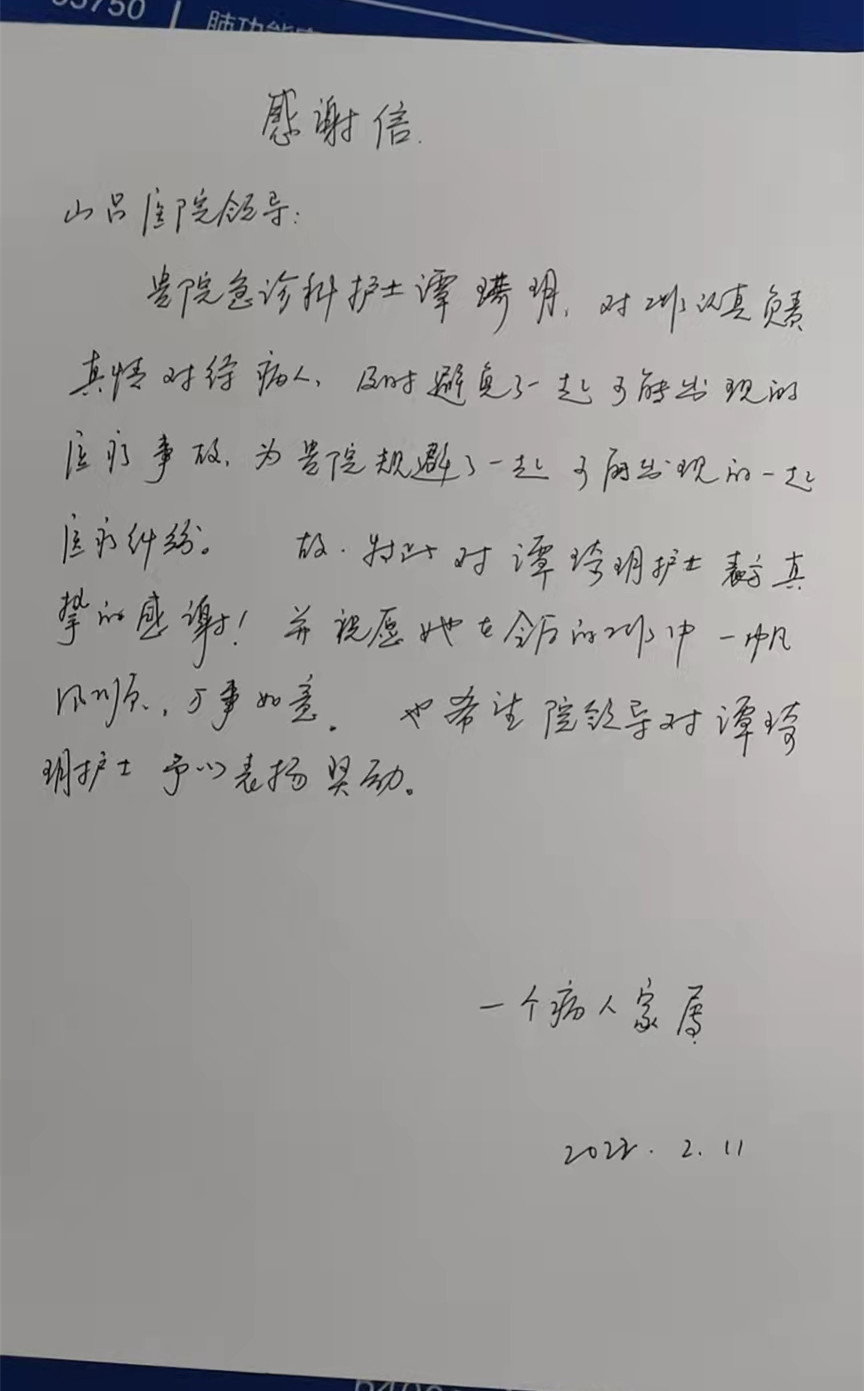 53750 | 肺功能室
感谢信.
山吕医院领导:
贵院急诊科护士谭琦玥,对工作认真负责
真情对待病人,及时避免了一起可能出现的
医疗事故,为贵院规避了一起可能出现的一起
医疗纠纷。 故.特此对谭琦玥护士表示真
挚的感谢!并祝愿她在今后的工作中一帆
风顺,万事如意。也希望院领导对谭琦
玥护士予以表扬奖励。
一个病人家属
2022.2.11